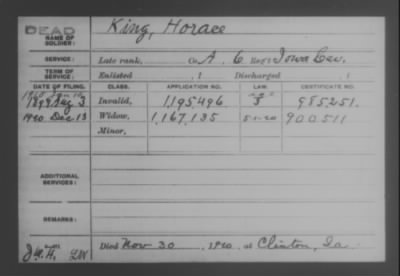 DEAD
NAME OF SOLDIER: King, Horace
SERVICE: Late rank, Co. A, 6 Reg't Iowa Cav.
TERM OF SERVICE: Enlisted , 1 Discharged , 1
DATE OF FILING. CLASS. APPLICATION NO. LAW. CERTIFICATE NO.
1897 Aug 3 Invalid, 1195496 985,251.
1920 Dec 13 Widow, 1,167,135 5-1-20 900511
Minor,
ADDITIONAL SERVICES:
REMARKS:
Died Nov 30, 1920, at Clinton, Ia